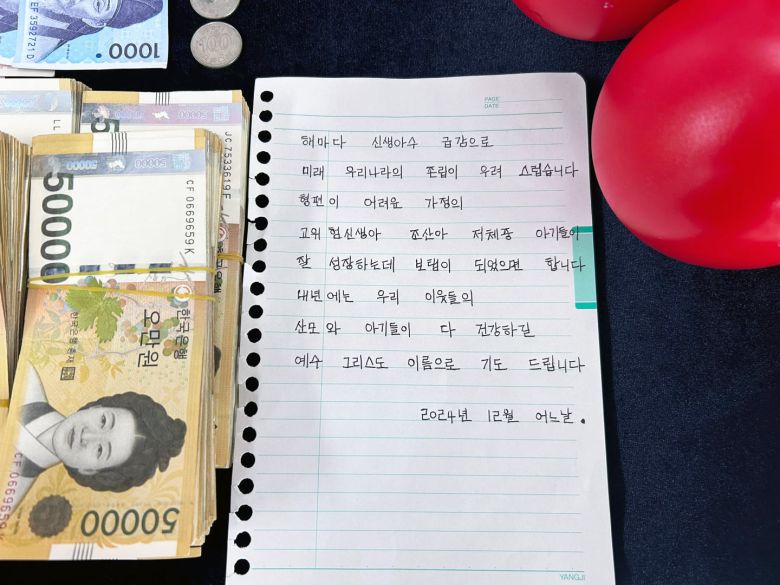 EF 3592721 D
1000
100
50000
JC 7533619 F
50000 50000
CF 0669659 K
50000
한국은행
오만원
한국은행 총재
CF 0669659 K
50000
PAGE
DATE
해마다 신생아수 급감으로
미래 우리나라의 존립이 우려 스럽습니다
형편이 어려운 가정의
고위험신생아 조산아 저체중 아기들이
잘 성장하는데 보탬이 되었으면 합니다
내년에는 우리 이웃들의
산모와 아기들이 다 건강하길
예수 그리스도 이름으로 기도 드립니다
2024년 12월 어느날.
YANGJI